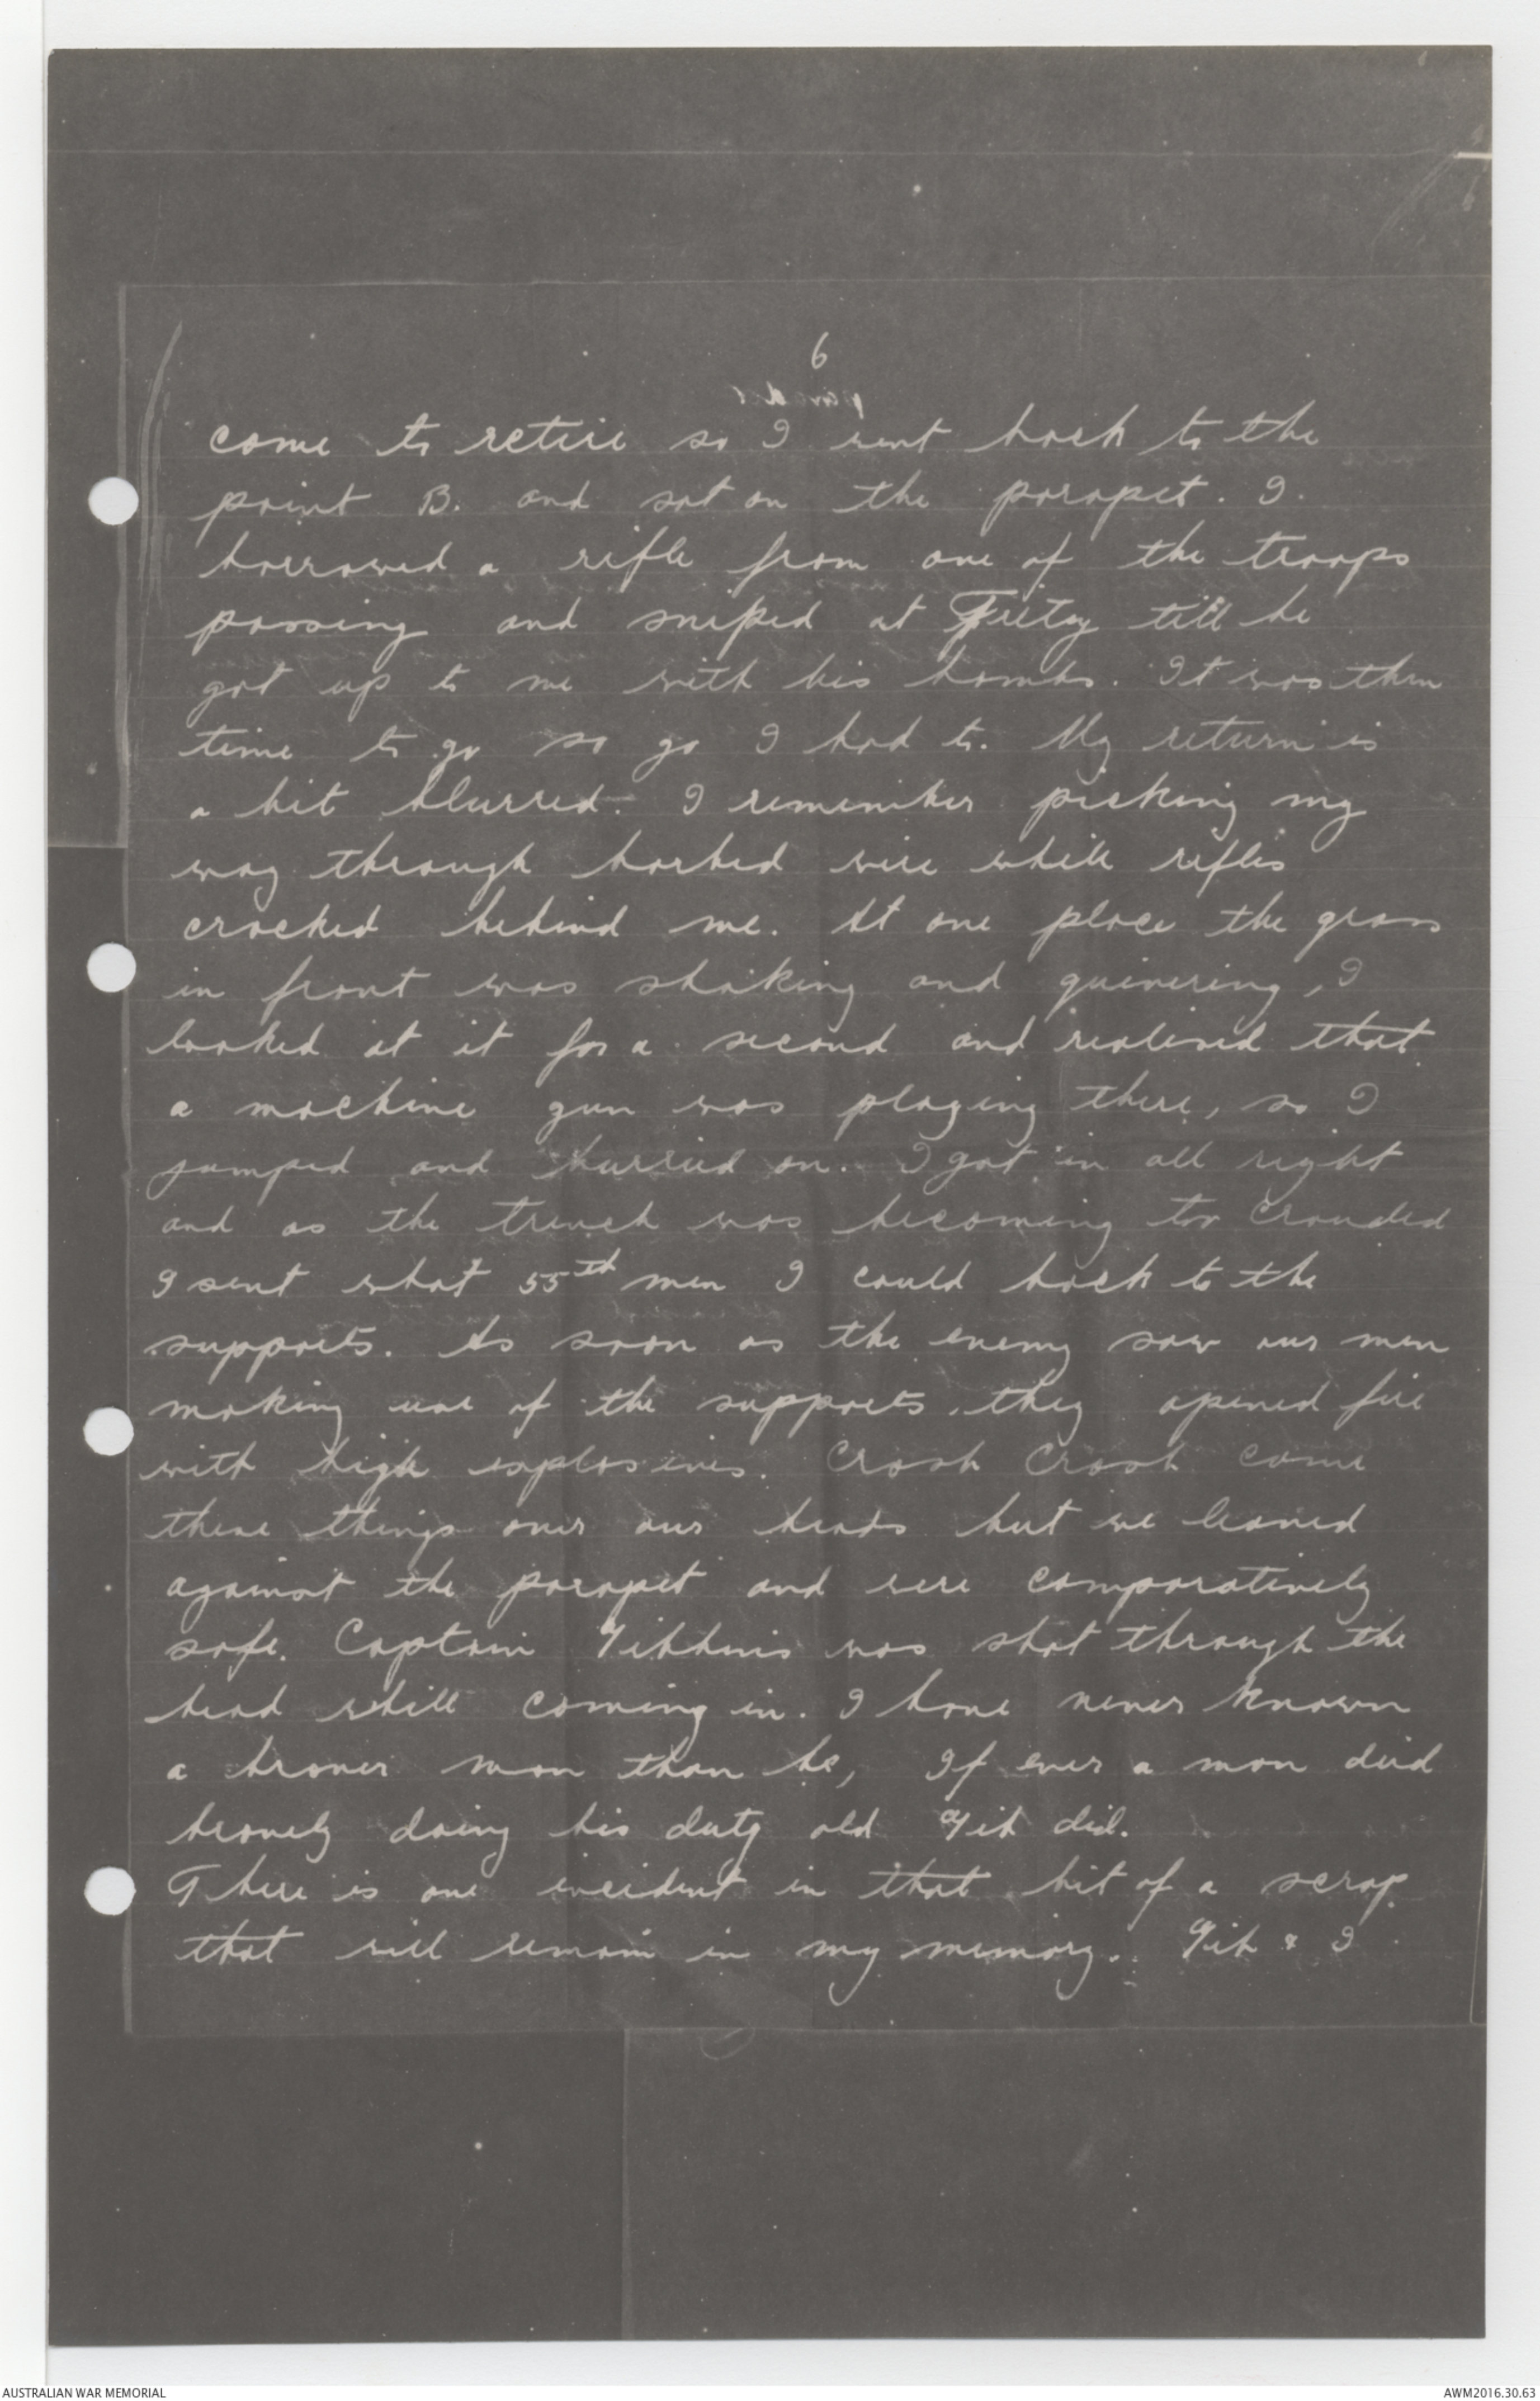 6
come to retire so I went back to the
point B. and sat on the parapet. I
borrowed a rifle from one of the troops
passing and sniped at Fritz till he
got up to me with his bombs. It was then
time to go so go I had to. My return is
a bit blurred. I remember picking my
way through barbed wire while rifles
cracked behind me. At one place the grass
in front was shaking and quivering, I
looked at it for a second and realised that
a machine gun was playing there, so I
jumped and hurried on. I got in all right
and as the trench was becoming too crowded
I sent what 55th men I could back to the
supports. As soon as the enemy saw our men
making use of the supports, they opened fire
with high explosives. Crash Crash came
these things over our heads but we leaned
against the parapet and were comparatively
safe. Captain Gibbins was shot through the
head while coming in. I have never known
a braver man than he, If ever a man died
bravely doing his duty old Gib did.
There is one incident in that bit of a scrap
that will remain in my memory. Gib & I
AUSTRALIAN WAR MEMORIAL
AWM2016.30.63